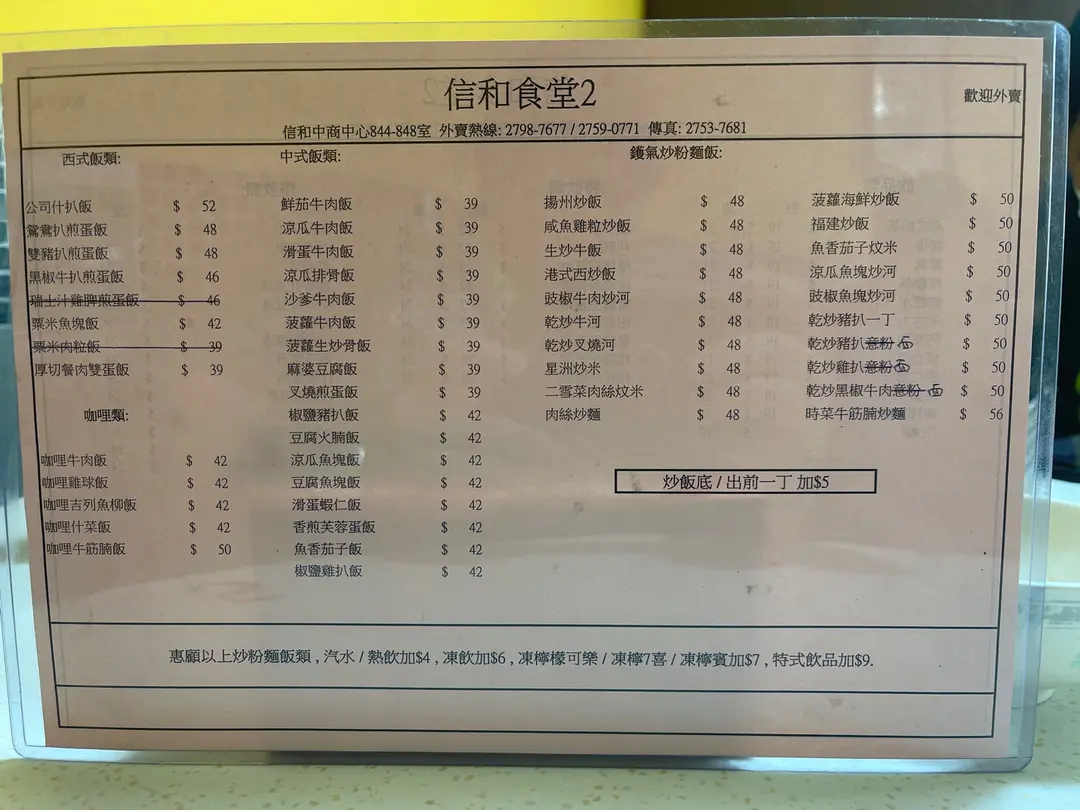 信和食堂2
歡迎外賣
信和中商中心844-848室 外賣熱線: 2798-7677 / 2759-0771 傳真: 2753-7681
西式飯類:
公司什扒飯 $ 52
鴛鴦扒煎蛋飯 $ 48
雙豬扒煎蛋飯 $ 48
黑椒牛扒煎蛋飯 $ 46
瑞士汁雞脾煎蛋飯 $ 46
粟米魚塊飯 $ 42
粟米肉粒飯 $ 39
厚切餐肉雙蛋飯 $ 39
咖哩類:
咖哩牛肉飯 $ 42
咖哩雞球飯 $ 42
咖哩吉列魚柳飯 $ 42
咖哩什菜飯 $ 42
咖哩牛筋腩飯 $ 50
中式飯類:
鮮茄牛肉飯 $ 39
涼瓜牛肉飯 $ 39
滑蛋牛肉飯 $ 39
涼瓜排骨飯 $ 39
沙爹牛肉飯 $ 39
菠蘿牛肉飯 $ 39
菠蘿生炒骨飯 $ 39
麻婆豆腐飯 $ 39
叉燒煎蛋飯 $ 39
椒鹽豬扒飯 $ 42
豆腐火腩飯 $ 42
涼瓜魚塊飯 $ 42
豆腐魚塊飯 $ 42
滑蛋蝦仁飯 $ 42
香煎芙蓉蛋飯 $ 42
魚香茄子飯 $ 42
椒鹽雞扒飯 $ 42
鑊氣炒粉麵飯:
揚州炒飯 $ 48
咸魚雞粒炒飯 $ 48
生炒牛飯 $ 48
港式西炒飯 $ 48
豉椒牛肉炒河 $ 48
乾炒牛河 $ 48
乾炒叉燒河 $ 48
星洲炒米 $ 48
二雪菜肉絲炆米 $ 48
肉絲炒麵 $ 48
菠蘿海鮮炒飯 $ 50
福建炒飯 $ 50
魚香茄子炆米 $ 50
涼瓜魚塊炒河 $ 50
豉椒魚塊炒河 $ 50
乾炒豬扒一丁 $ 50
乾炒豬扒意粉 $ 50
乾炒雞扒意粉 $ 50
乾炒黑椒牛肉意粉 $ 50
時菜牛筋腩炒麵 $ 56
炒飯底 / 出前一丁 加$5
惠顧以上炒粉麵飯類 , 汽水 / 熱飲加$4 , 凍飲加$6 , 凍檸檬可樂 / 凍檸7喜 / 凍檸賓加$7 , 特式飲品加$9.